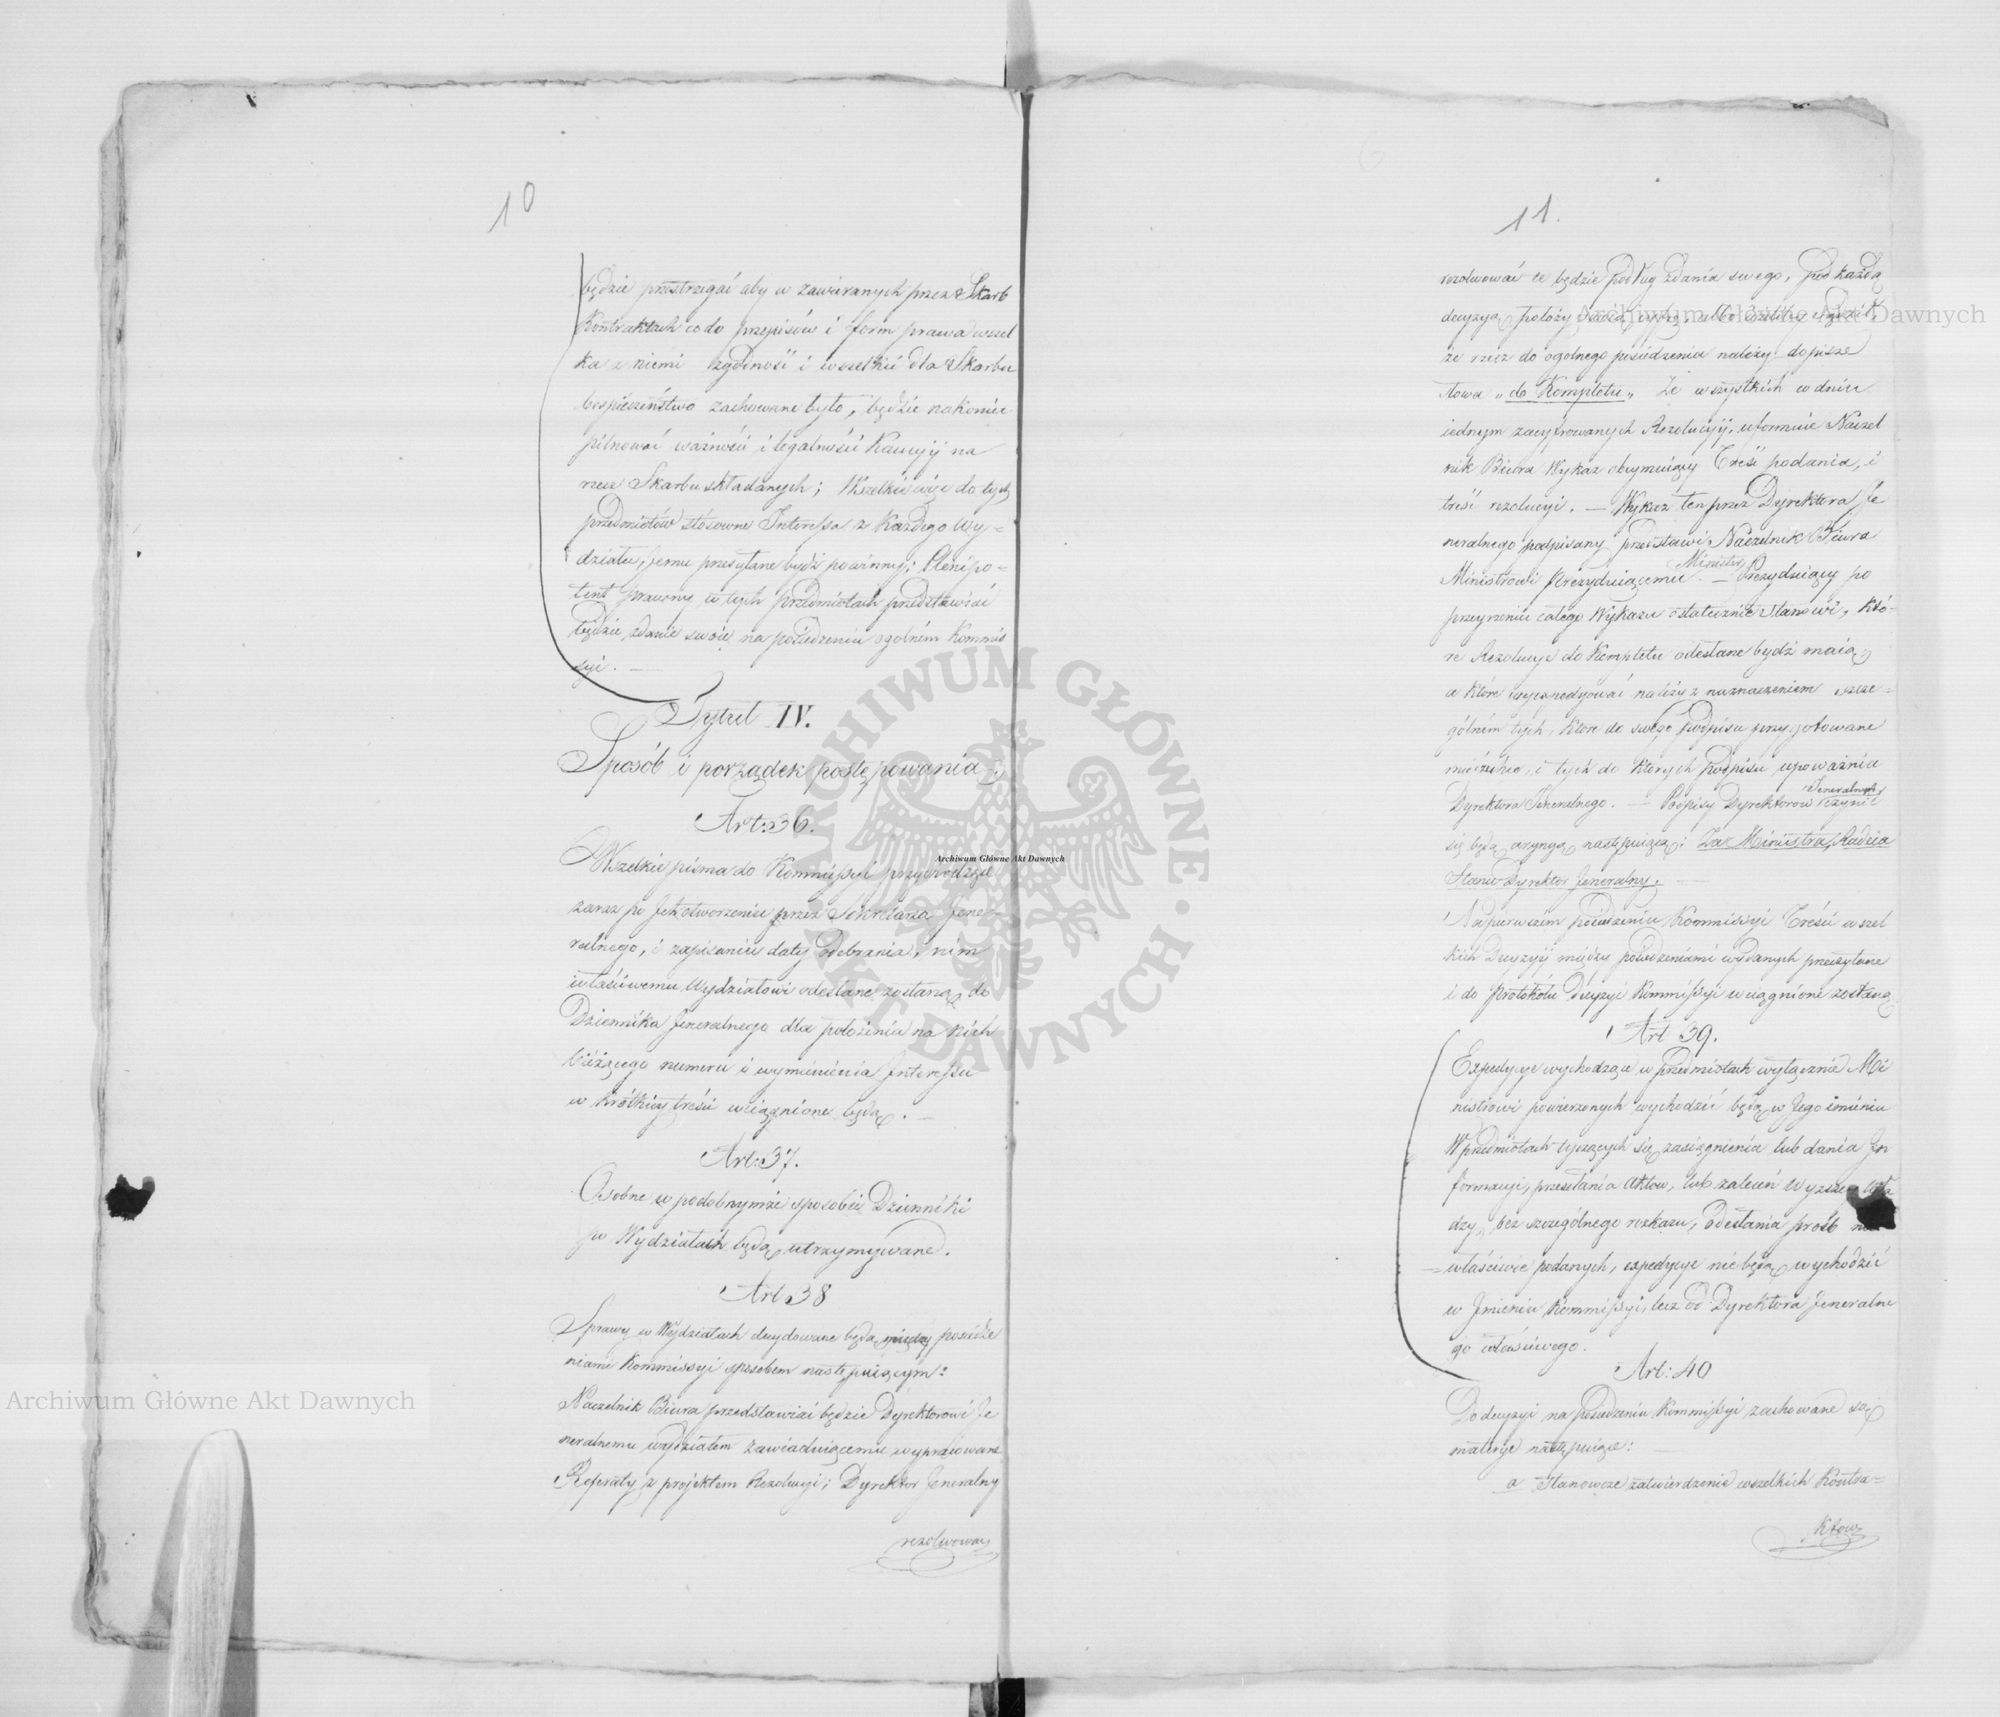 10
będzie przestrzegać aby w zawieranych przez Skarb
Kontraktach co do przepisów i form prawa wszel
ka z niemi zgodność i wszelkie dla Skarbu
bespieczeństwo zachowane było, będzie nakoniec
pilnować ważność i legalność Kaucyj na
rzecz Skarbu składanych; Wszelkie więc do tych
przedmiotów stósowne Interessa z Każdego Wy=
działu, Jemu przesyłane bydź powinny; Plenipo=
tent prawny w tych przedmiotach przedstawiać
będzie zdanie swoie na posiedzeniu ogolném Kommis
syi. —
Tytuł IV.
Sposób i porządek postępowania.
Art: 36.
Wszelkie pisma do Kommissyi przychodzące
zaraz po Ich otworzeniu przez Sekretarza Jene-
ralnego, i zapisaniu daty odebrania, nim
właściwemu Wydziałowi odesłane zostaną do
Dziennika Jeneralnego dla położenia na nich
bieżącego numeru i wymienienia Interessu
w krótkiey treści wciągnione będą. —
Art: 37.
Osobne w podobnymże sposobie Dzienniki
po Wydziałach będą utrzymywane.
Art: 38
Sprawy w Wydziałach decydowane będą między posiedze
niami Kommissyi sposobem następuiącym:
Naczelnik Biura przedstawiać będzie Dyrektorowi Je
neralnemu wydziałem zawiaduiącemu wypracowane
Referaty z projektem Rezolucyi; Dyrektor Jeneralny
rezolwować
11.
rezolwować te będzie podług zdania swego, pod każdą
decyzyą położy swoią cyfrę, albo ieżeliby sądził,
że rzecz do ogolnego posiedzenia należy dopisze
słowa „do Kompletu„ Ze wszystkich w dniu
iednym zacyfrowanych Rezolucyj, uformuie Naczel
nik Biura Wykaz obeymuiący Treść podania, i
treść rezolucyi. — Wykaz ten przez Dyrektora Je
neralnego podpisany przedstawi Naczelnik Biura
Ministrowi Prezyduiącemu. — Minister Prezyduiący po
przeyrzeniu całego Wykazu ostatecznie stanowi, Któ-
re Rezolucye do Kompletu odesłane bydź maią
a Które wyexpedyować należy z naznaczeniem szcze=
gólném tych, które do swego podpisu przygotowane
mieć chce, i tych do których podpisu upoważnia
Dyrektora Jeneralnego. — Podpisy Dyrektorow Jeneralnych
się będą czynią następuiące: Za Ministra, Radca
Stanu Dyrektor Jeneralny. —
Na pierwszem posiedzeniu Kommissyi Treść wszel
kich Decyzyj między posiedzeniami wydanych przeczytane
i do Protokółu Decyzyi Kommissyi wciągnione zostaną
Art 39.
Expedycye wychodzące w przedmiotach wyłącznie Mi
nistrowi powierzonych wychodzić będą w Jego imieniu
W przedmiotach tyczących się zasiągnienia lub dania In
formacyi, przesłania Aktow, lub zaleceń Wyższey Wła
dzy, bez szczególnego rozkazu, odesłania próśb nie
=właściwie podanych, expedycye nie będą wychodzić
w Jmieniu Kommissyi, lecz od Dyrektora Jeneralne
go właściwego.
Art: 40
Do decyzyi na posiedzeniu Kommissyi zachowane są
materye następuiące:
a Stanowcze zatwierdzenie wszelkich Kontra=
któw
Archiwum Główne Akt Dawnych
Archiwum Główne Akt Dawnych
Archiwum Główne Akt Dawnych
ARCHIWUM GŁÓWNE · AKT DAWNYCH ·